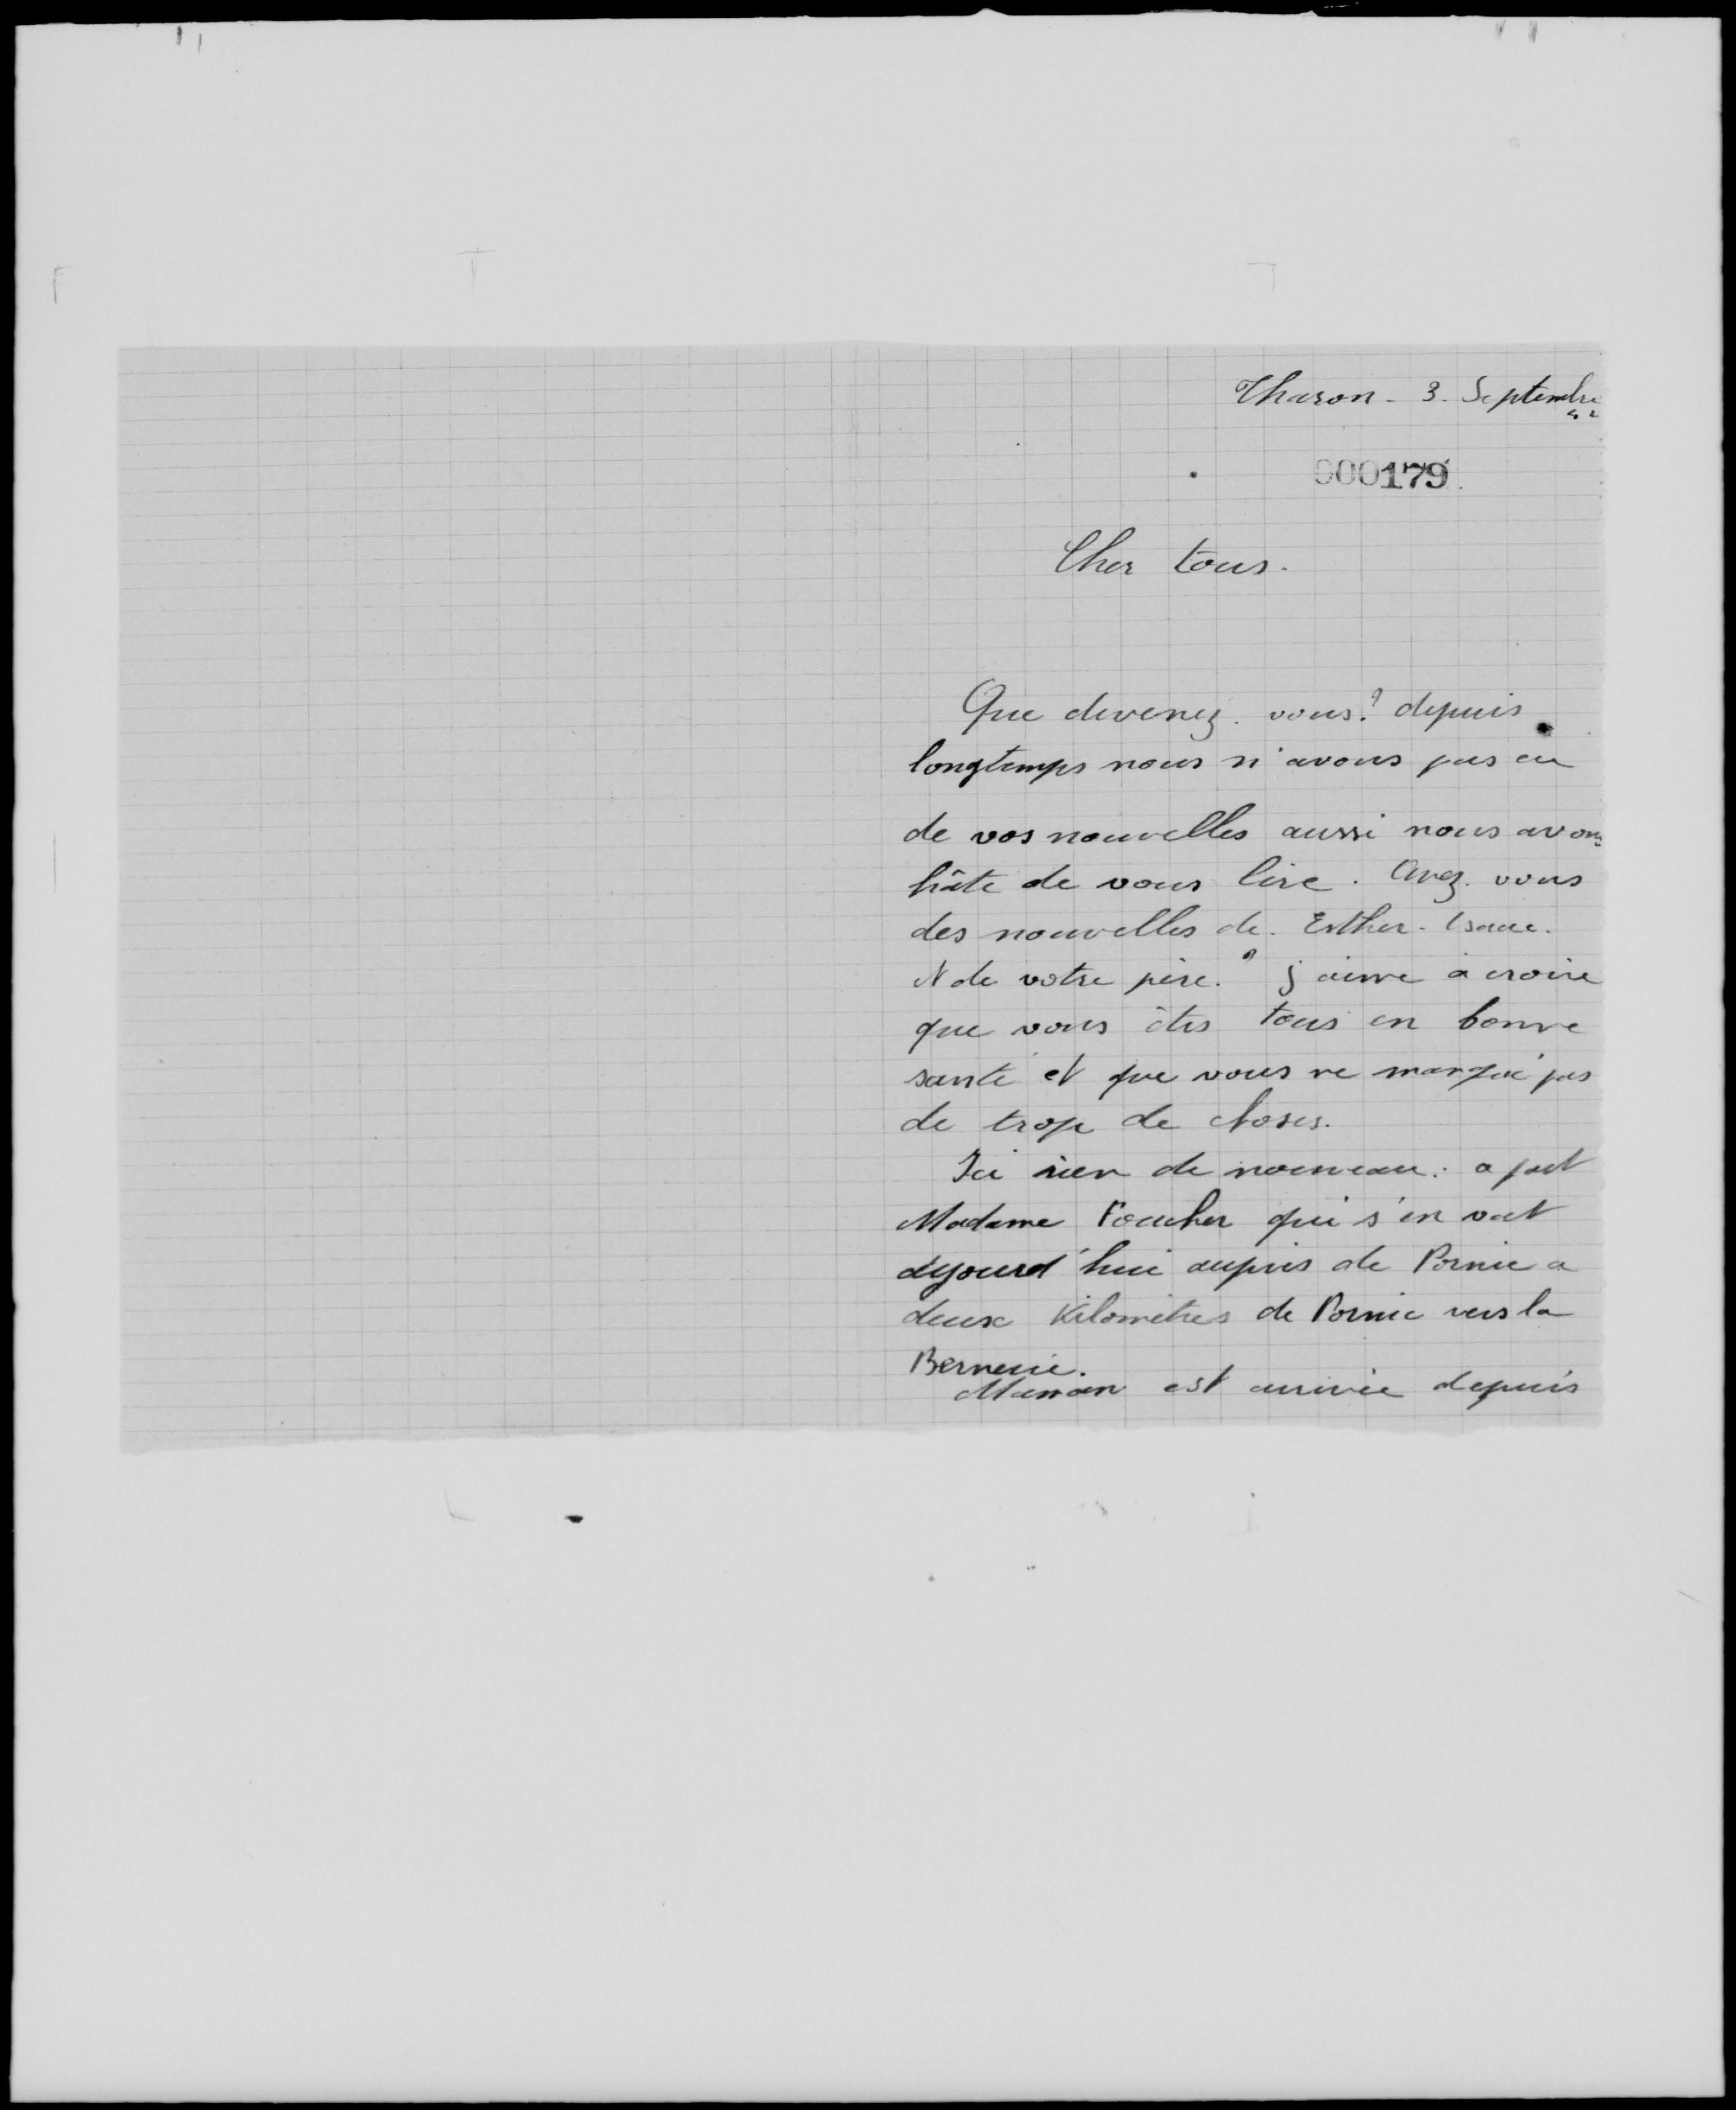 Tharon - 3. Septembre
42
000179
Cher tous.
Que devenez. vous? depuis
longtemps nous n'avons pas eu
de vos nouvelles aussi nous avons
hâte de vous lire. Avez. vous
des nouvelles de. Esther. Isaac.
et de votre père? j'aime à croire
que vous êtes tous en bonne
santé et que vous ne manqué pas
de trop de choses.
Ici rien de nouveau: a part
Madame Foucher qui s'en vat
aujourd'hui auprès de Pornic a
deux Kilomètres de Pornic vers la
Bernerie.
Maman est arrivée depuis